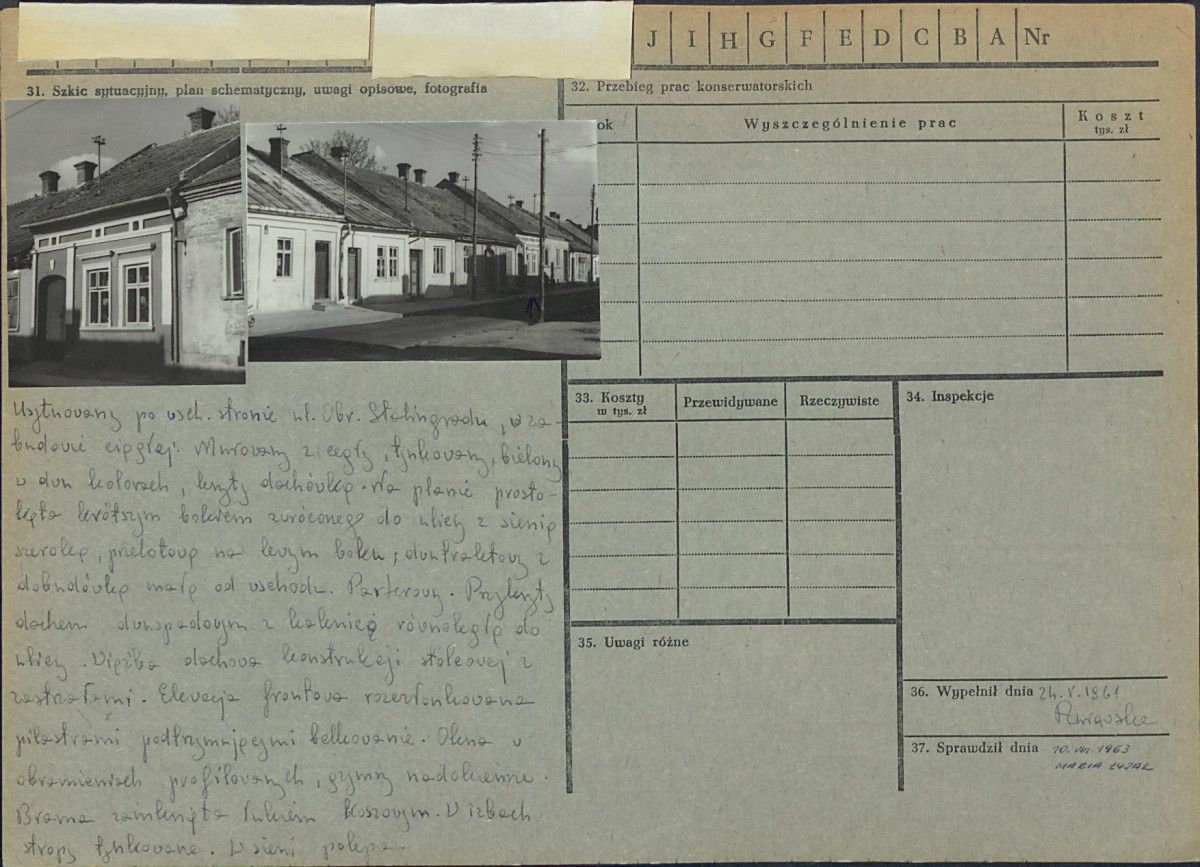 J I H G F E D C B A Nr
31. Szkic sytuacyjny, plan schematyczny, uwagi opisowe, fotografia
32. Przebieg prac konserwatorskich
ok
Wyszczególnienie prac
Koszt
tys. zł
Usytuowany po wsch. stronie ul. Obr. Stalingradu, w za-
budowie ciągłej. Murowany z cegły, tynkowany, bielony
w dwu kolorach, kryty dachówką. Na planie prosto-
kąta krótszym bokiem zwróconego do ulicy z sienią
szeroką, przelotową na lewym boku; dwutraktowy z
dobudówką małą od wschodu. Parterowy. Przykryty
dachem dwuspadowym z kalenicą równoległą do
ulicy. Więźba dachowa konstrukcji stolcowej z
zastrzałami. Elewacja frontowa rozczłonkowana
pilastrami podtrzymującymi belkowanie. Okna w
obramieniach profilowanych, gzymsy nadokienne.
Brama zamknięta łukiem koszowym. W izbach
stropy tynkowane. W sieni polepa.
33. Koszty
w tys. zł
Przewidywane
Rzeczywiste
34. Inspekcje
35. Uwagi różne
36. Wypełnił dnia 24.V.1961
37. Sprawdził dnia 10.VIII.1963
MARIA